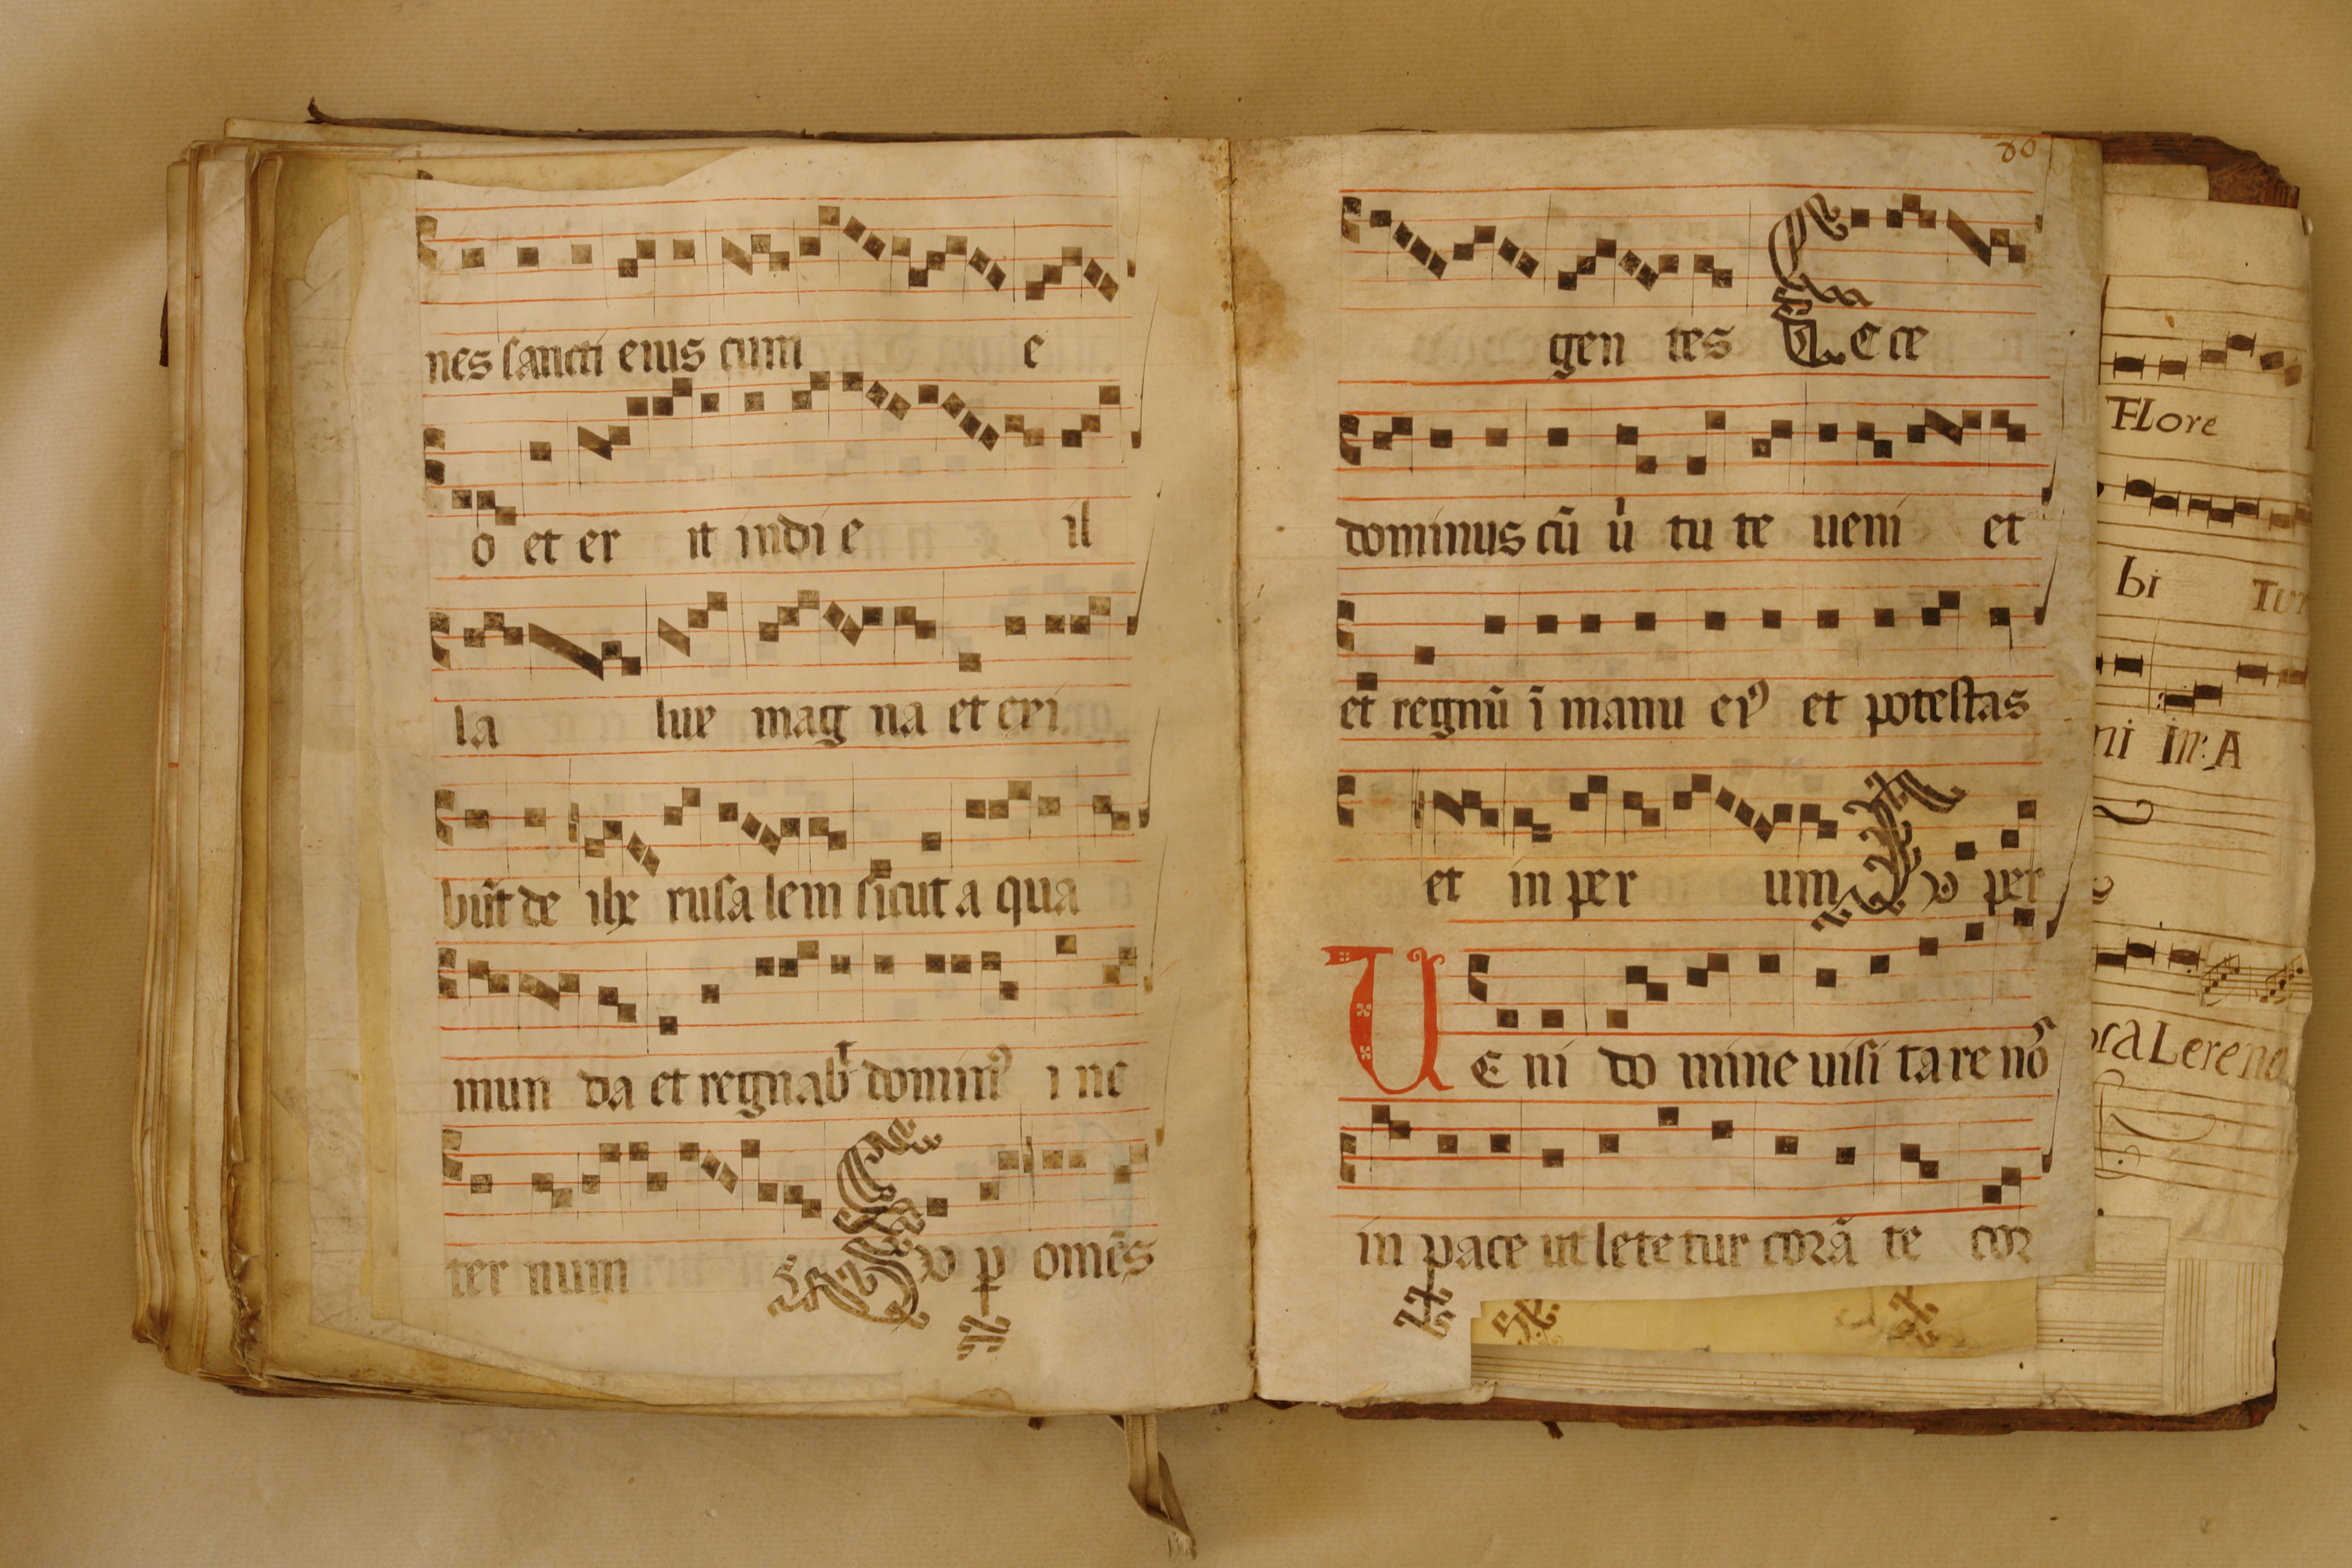 nes sancti eius cum e
o et er it in di e il
la lux mag na et exi
būt de ihe rusa lem sicut a qua
mun da et regnabt dominꝰ i ne
ter num ꝓ omēs
80
gen tes Ecce
dominus cū ủ tu te ueni et
et regnū ī manu eiꝰ et potestas
et in per ium per
Ue ni do mine uisi ta re nos
in pace ut lete tur corā te cor
FLore
bi Tur
ni in: A
ra Lere no